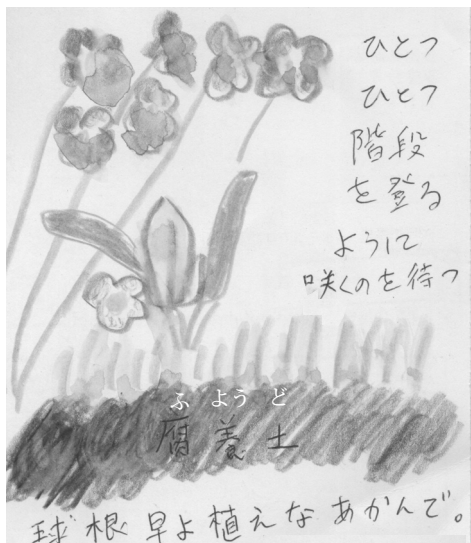 ひとつ
ひとつ
階段
を登る
ように
咲くのを待つ
ふようど
腐養土
球根早よ植えなあかんで。